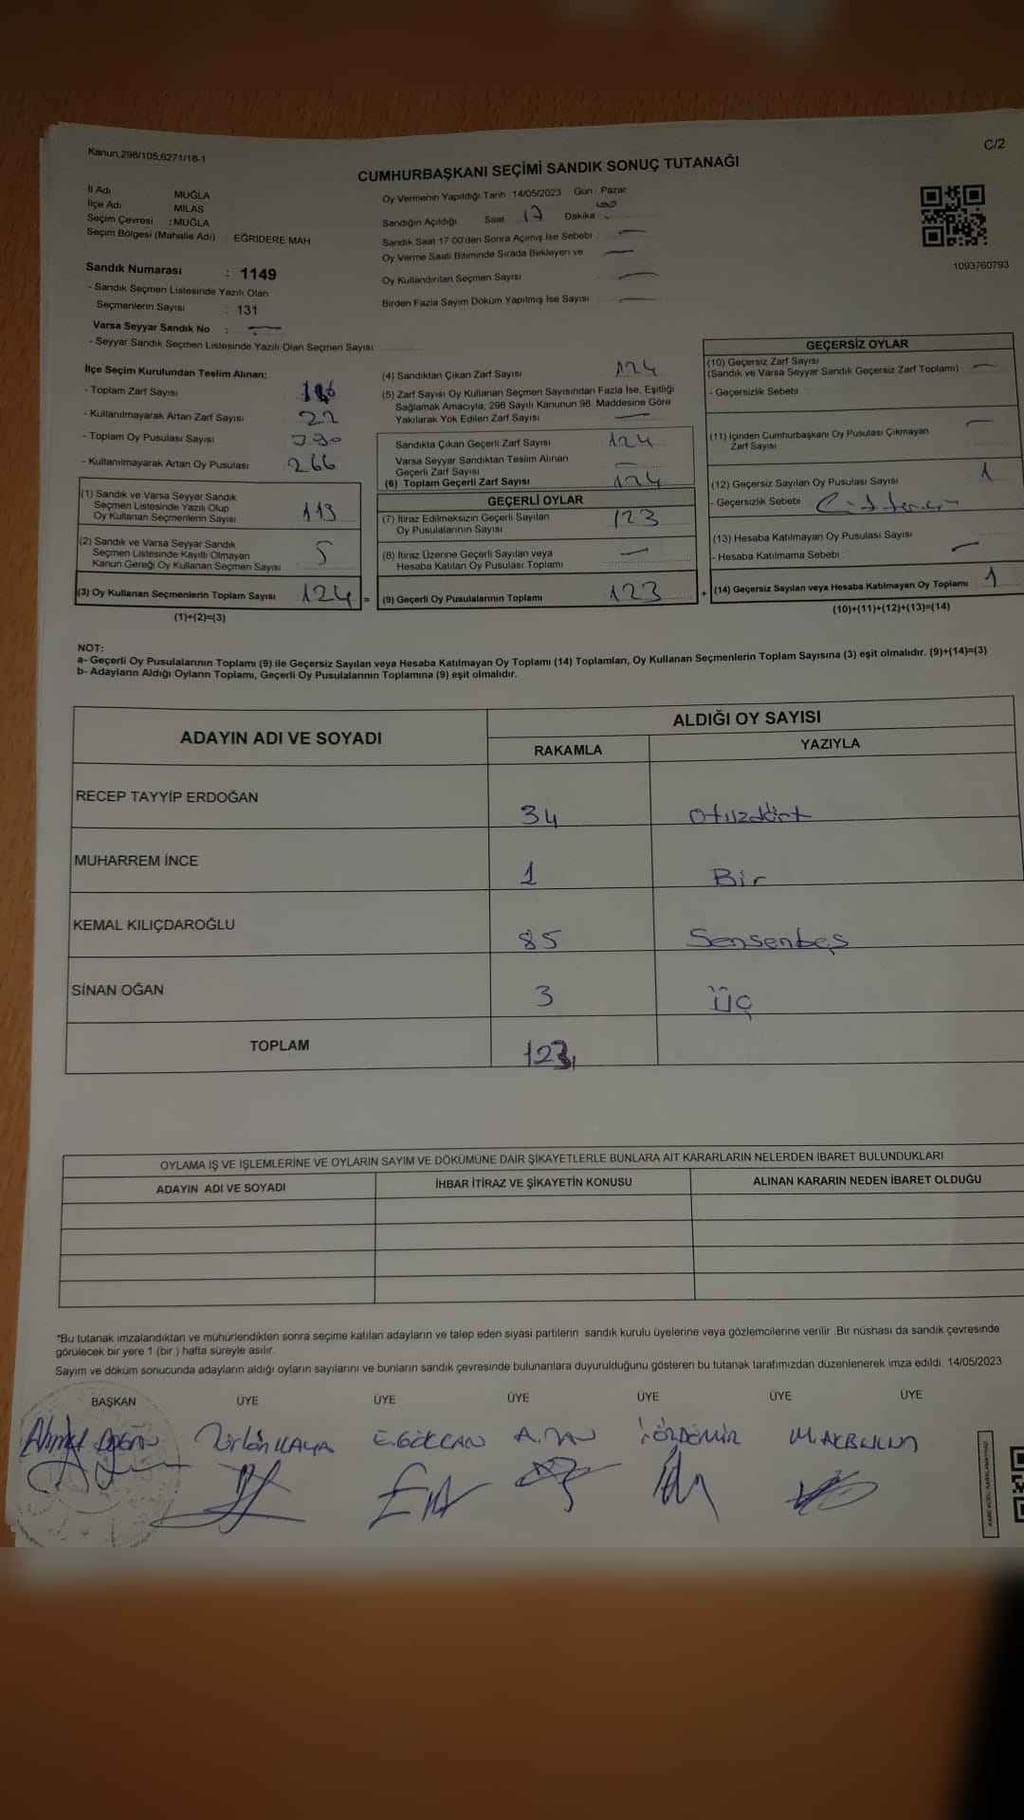 Kanun:298/105;6271/18-1
C/2
CUMHURBAŞKANI SEÇİMİ SANDIK SONUÇ TUTANAĞI
İl Adı MUĞLA
İlçe Adı MİLAS
Seçim Çevresi : MUĞLA
Seçim Bölgesi (Mahalle Adı) EĞRİDERE MAH
Oy Vermenin Yapıldığı Tarih 14/05/2023 Gün : Pazar
Sandığın Açıldığı Saat 17 Dakika
Sandık Saat 17:00'den Sonra Açılmış İse Sebebi
Oy Verme Saati Bitiminde Sırada Bekleyen ve
Oy Kullandırılan Seçmen Sayısı
Birden Fazla Sayım Döküm Yapılmış İse Sayısı
1093760793
Sandık Numarası : 1149
- Sandık Seçmen Listesinde Yazılı Olan
Seçmenlerin Sayısı : 131
Varsa Seyyar Sandık No :
- Seyyar Sandık Seçmen Listesinde Yazılı Olan Seçmen Sayısı
İlçe Seçim Kurulundan Teslim Alınan:
- Toplam Zarf Sayısı
- Kullanılmayarak Artan Zarf Sayısı 22
- Toplam Oy Pusulası Sayısı 390
- Kullanılmayarak Artan Oy Pusulası 266
(1) Sandık ve Varsa Seyyar Sandık
Seçmen Listesinde Yazılı Olup
Oy Kullanan Seçmenlerin Sayısı
(2) Sandık ve Varsa Seyyar Sandık
Seçmen Listesinde Kayıtlı Olmayan
Kanun Gereği Oy Kullanan Seçmen Sayısı 5
(3) Oy Kullanan Seçmenlerin Toplam Sayısı 124 =
(1)+(2)=(3)
(4) Sandıktan Çıkan Zarf Sayısı 124
(5) Zarf Sayısı Oy Kullanan Seçmen Sayısından Fazla İse, Eşitliği
Sağlamak Amacıyla; 298 Sayılı Kanunun 98. Maddesine Göre
Yakılarak Yok Edilen Zarf Sayısı
Sandıkta Çıkan Geçerli Zarf Sayısı 124
Varsa Seyyar Sandıktan Teslim Alınan
Geçerli Zarf Sayısı
(6) Toplam Geçerli Zarf Sayısı 124
GEÇERLİ OYLAR
(7) İtiraz Edilmeksizin Geçerli Sayılan
Oy Pusulalarının Sayısı 123
(8) İtiraz Üzerine Geçerli Sayılan veya
Hesaba Katılan Oy Pusulası Toplamı
(9) Geçerli Oy Pusulalarının Toplamı 123 +
GEÇERSİZ OYLAR
(10) Geçersiz Zarf Sayısı
(Sandık ve Varsa Seyyar Sandık Geçersiz Zarf Toplamı)
- Geçersizlik Sebebi
(11) İçinden Cumhurbaşkanı Oy Pusulası Çıkmayan
Zarf Sayısı
(12) Geçersiz Sayılan Oy Pusulası Sayısı 1
- Geçersizlik Sebebi
(13) Hesaba Katılmayan Oy Pusulası Sayısı
- Hesaba Katılmama Sebebi
(14) Geçersiz Sayılan veya Hesaba Katılmayan Oy Toplamı 1
(10)+(11)+(12)+(13)=(14)
NOT:
a- Geçerli Oy Pusulalarının Toplamı (9) ile Geçersiz Sayılan veya Hesaba Katılmayan Oy Toplamı (14) Toplamları, Oy Kullanan Seçmenlerin Toplam Sayısına (3) eşit olmalıdır. (9)+(14)=(3)
b- Adayların Aldığı Oyların Toplamı, Geçerli Oy Pusulalarının Toplamına (9) eşit olmalıdır.
ADAYIN ADI VE SOYADI
ALDIĞI OY SAYISI
RAKAMLA YAZIYLA
RECEP TAYYİP ERDOĞAN 34 Otuzdört
MUHARREM İNCE 1 Bir
KEMAL KILIÇDAROĞLU 85 Sensenbeş
SİNAN OĞAN 3 Üç
TOPLAM 123
OYLAMA İŞ VE İŞLEMLERİNE VE OYLARIN SAYIM VE DÖKÜMÜNE DAİR ŞİKAYETLERLE BUNLARA AİT KARARLARIN NELERDEN İBARET BULUNDUKLARI
ADAYIN ADI VE SOYADI İHBAR İTİRAZ VE ŞİKAYETİN KONUSU ALINAN KARARIN NEDEN İBARET OLDUĞU
*Bu tutanak imzalandıktan ve mühürlendikten sonra seçime katılan adayların ve talep eden siyasi partilerin sandık kurulu üyelerine veya gözlemcilerine verilir. Bir nüshası da sandık çevresinde
görülecek bir yere 1 (bir ) hafta süreyle asılır.
Sayım ve döküm sonucunda adayların aldığı oyların sayılarını ve bunların sandık çevresinde bulunanlara duyurulduğunu gösteren bu tutanak tarafımızdan düzenlenerek imza edildi. 14/05/2023
BAŞKAN ÜYE ÜYE ÜYE ÜYE ÜYE ÜYE
E.GÖKCAN M.AKBULUT